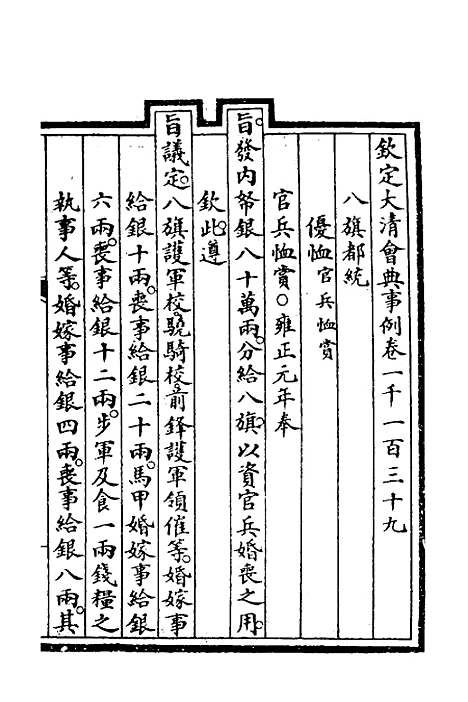 欽定大清會典事例卷一千一百三十九
八旗都統
優恤官兵恤賞
官兵恤賞○雍正元年奉
旨。發內帑銀八十萬兩。分給八旗。以資官兵婚喪之用。
欽此。遵
旨議定。八旗護軍校。驍騎校。前鋒護軍領催等。婚嫁事
給銀十兩。喪事給銀二十兩。馬甲婚嫁事給銀
六兩。喪事給銀十二兩。步軍及食一兩錢糧之
執事人等。婚嫁事給銀四兩。喪事給銀八兩。其